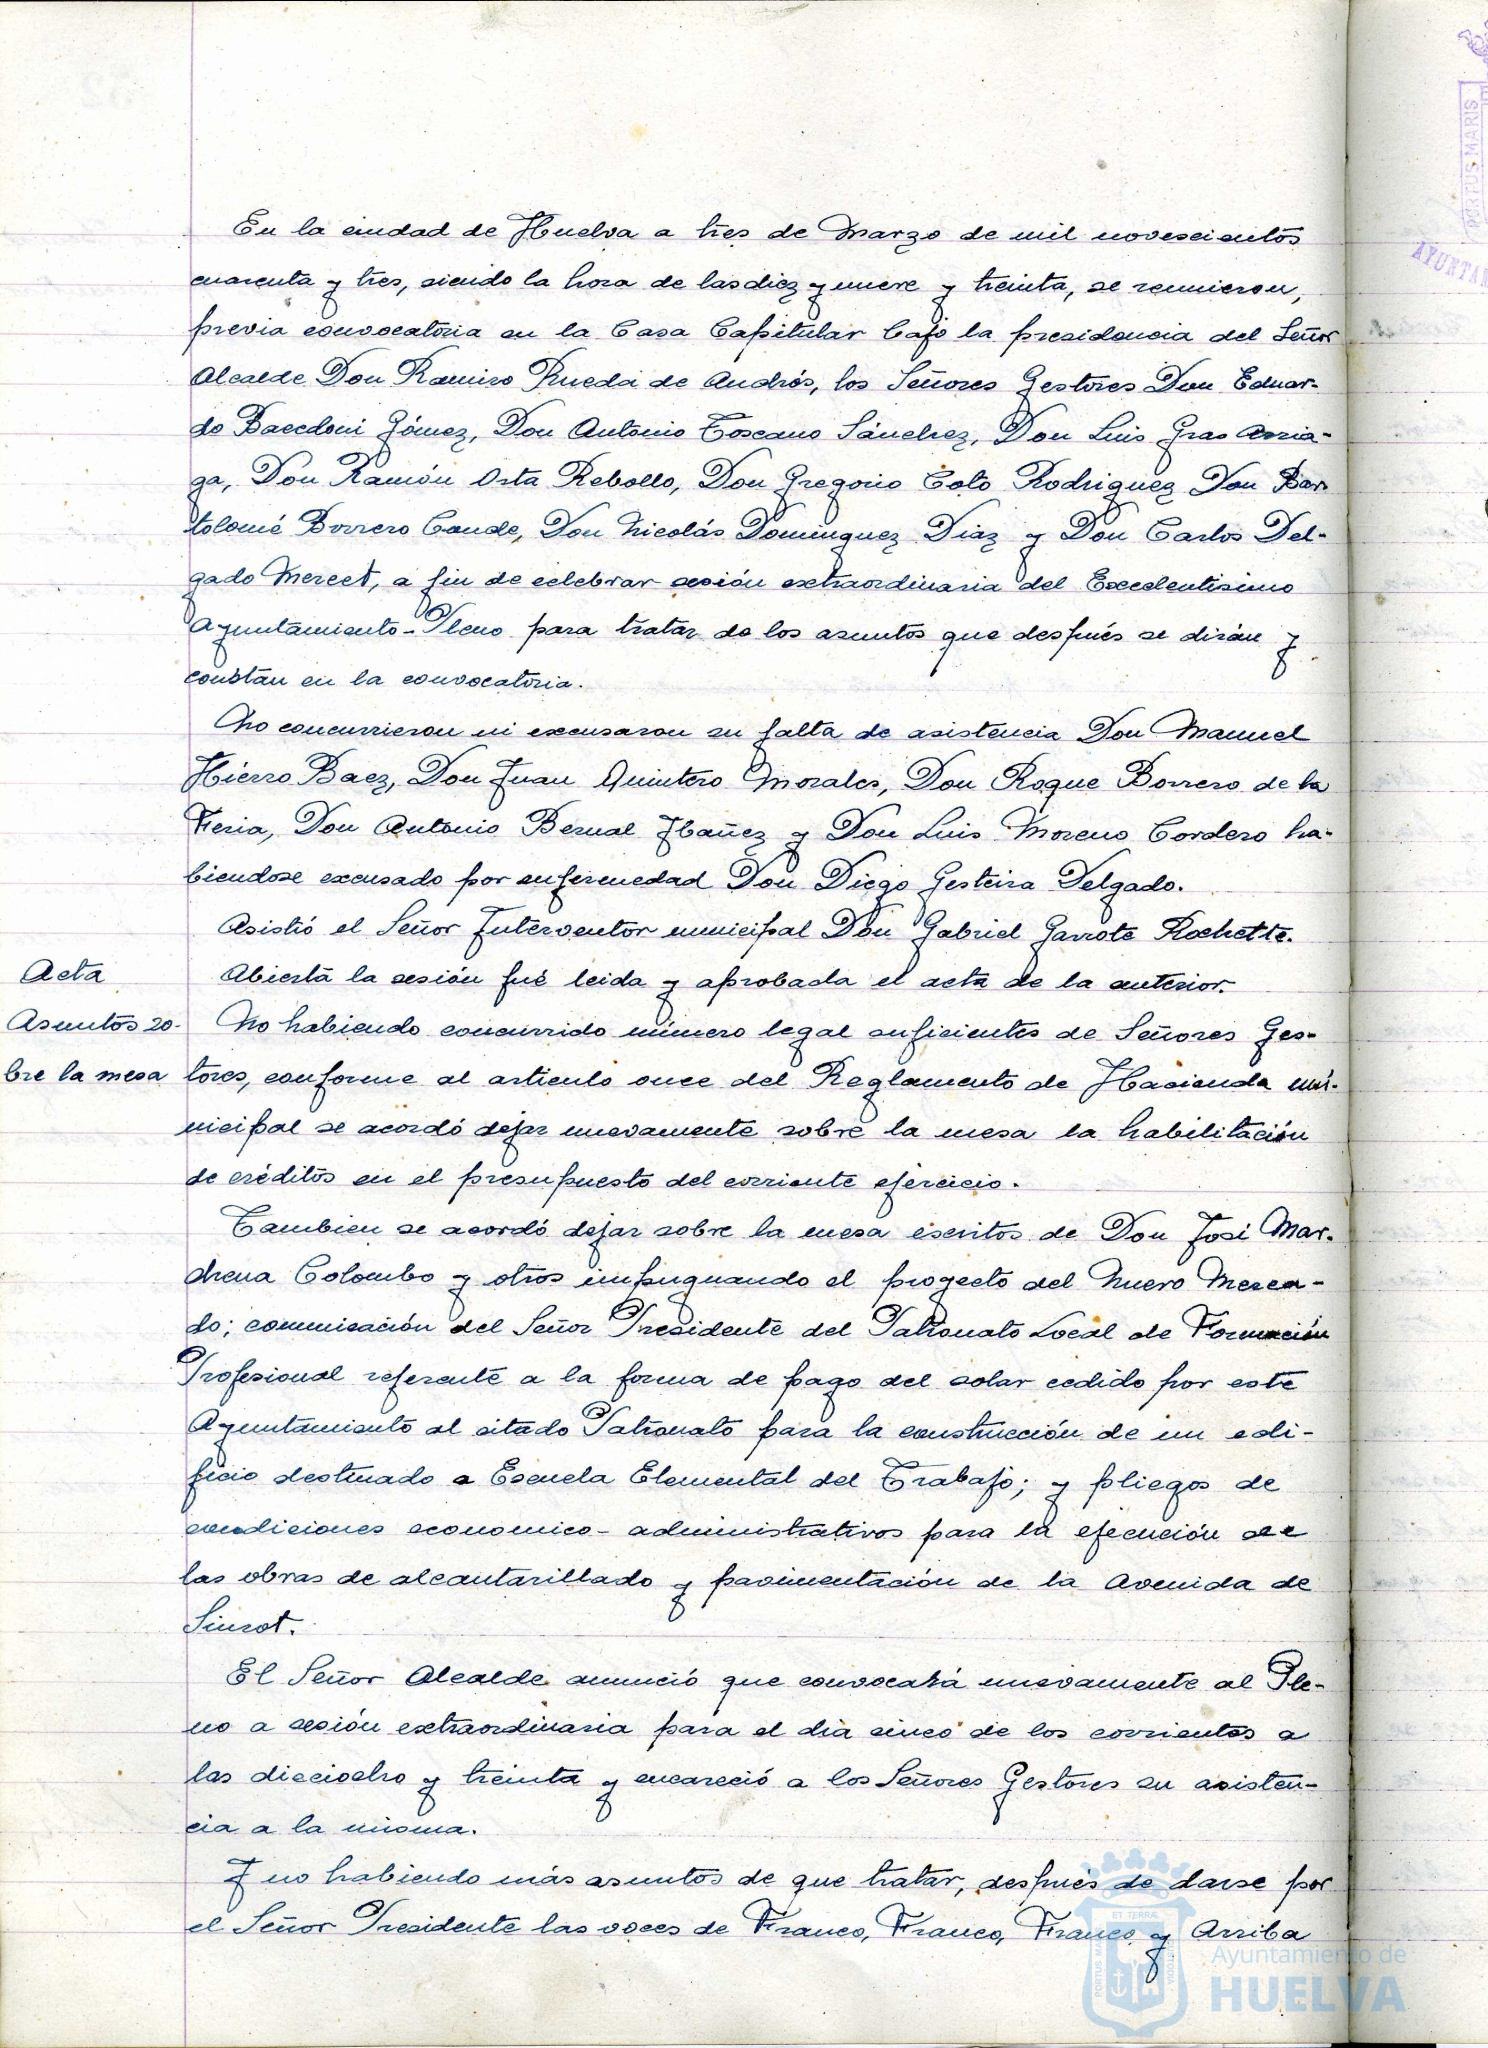 En la ciudad de Huelva a tres de Marzo de mil novescientos
cuarenta y tres, siendo la hora de las diez y nueve y treinta, se reunieron,
previa convocatoria en la Casa Capitular bajo la presidencia del Señor
Alcalde Don Ramiro Rueda de Andrés, los Señores Gestores Don Eduar-
do Baccdoni Gómez, Don Antonio Toscano Sánchez, Don Luis Gras Arria-
ga, Don Ramón Orta Rebollo, Don Gregorio Coto Rodriguez Don Bar
tolomé Borrero Conde, Don Nicolás Dominguez Diaz y Don Carlos Del-
gado Mercet, a fin de celebrar sesión extraordinaria del Excelentisimo
Ayuntamiento-Pleno para tratar de los asuntos que después se dirán y
constan en la convocatoria.
No concurrieron ni excusaron su falta de asistencia Don Manuel
Hierro Baez, Don Juan Quintero Morales, Don Roque Borrero de la
Feria, Don Antonio Bernal Ibañez y Don Luis Moreno Cordero ha-
biendose excusado por enfermedad Don Diego Gesteira Delgado.
Asistió el Señor Interventor municipal Don Gabriel Garrote Rochette.
Acta
Abierta la sesión fué leida y aprobada el acta de la anterior.
Asuntos so-
bre la mesa
No habiendo concurrido número legal suficientes de Señores Ges-
tores, conforme al articulo once del Reglamento de Hacienda mu-
nicipal se acordó dejar nuevamente sobre la mesa la habilitación
de créditos en el presupuesto del corriente ejercicio.
Tambien se acordó dejar sobre la mesa escritos de Don José Mar-
chena Colombo y otros impugnando el proyecto del Nuevo Merca-
do; comunicación del Señor Presidente del Patronato Local de Formación
Profesional referente a la forma de pago del solar cedido por este
Ayuntamiento al citado Patronato para la construcción de un edi-
ficio destinado a Escuela Elemental del Trabajo; y pliegos de
condiciones economico-administrativos para la ejecución de
las obras de alcantarillado y pavimentación de la Avenida de
Siurot.
El Señor Alcalde anunció que convocará nuevamente al Ple-
no a sesión extraordinaria para el dia cinco de los corrientes a
las dieciocho y treinta y encareció a los Señores Gestores su asisten-
cia a la misma.
Y no habiendo más asuntos de que tratar, después de darse por
el Señor Presidente las voces de Franco, Franco, Franco y Arriba
PORTUS MARIS
AYUNTAM
ET TERRÆ
PORTUS MA
CUSTODIA
Ayuntamiento de
HUELVA